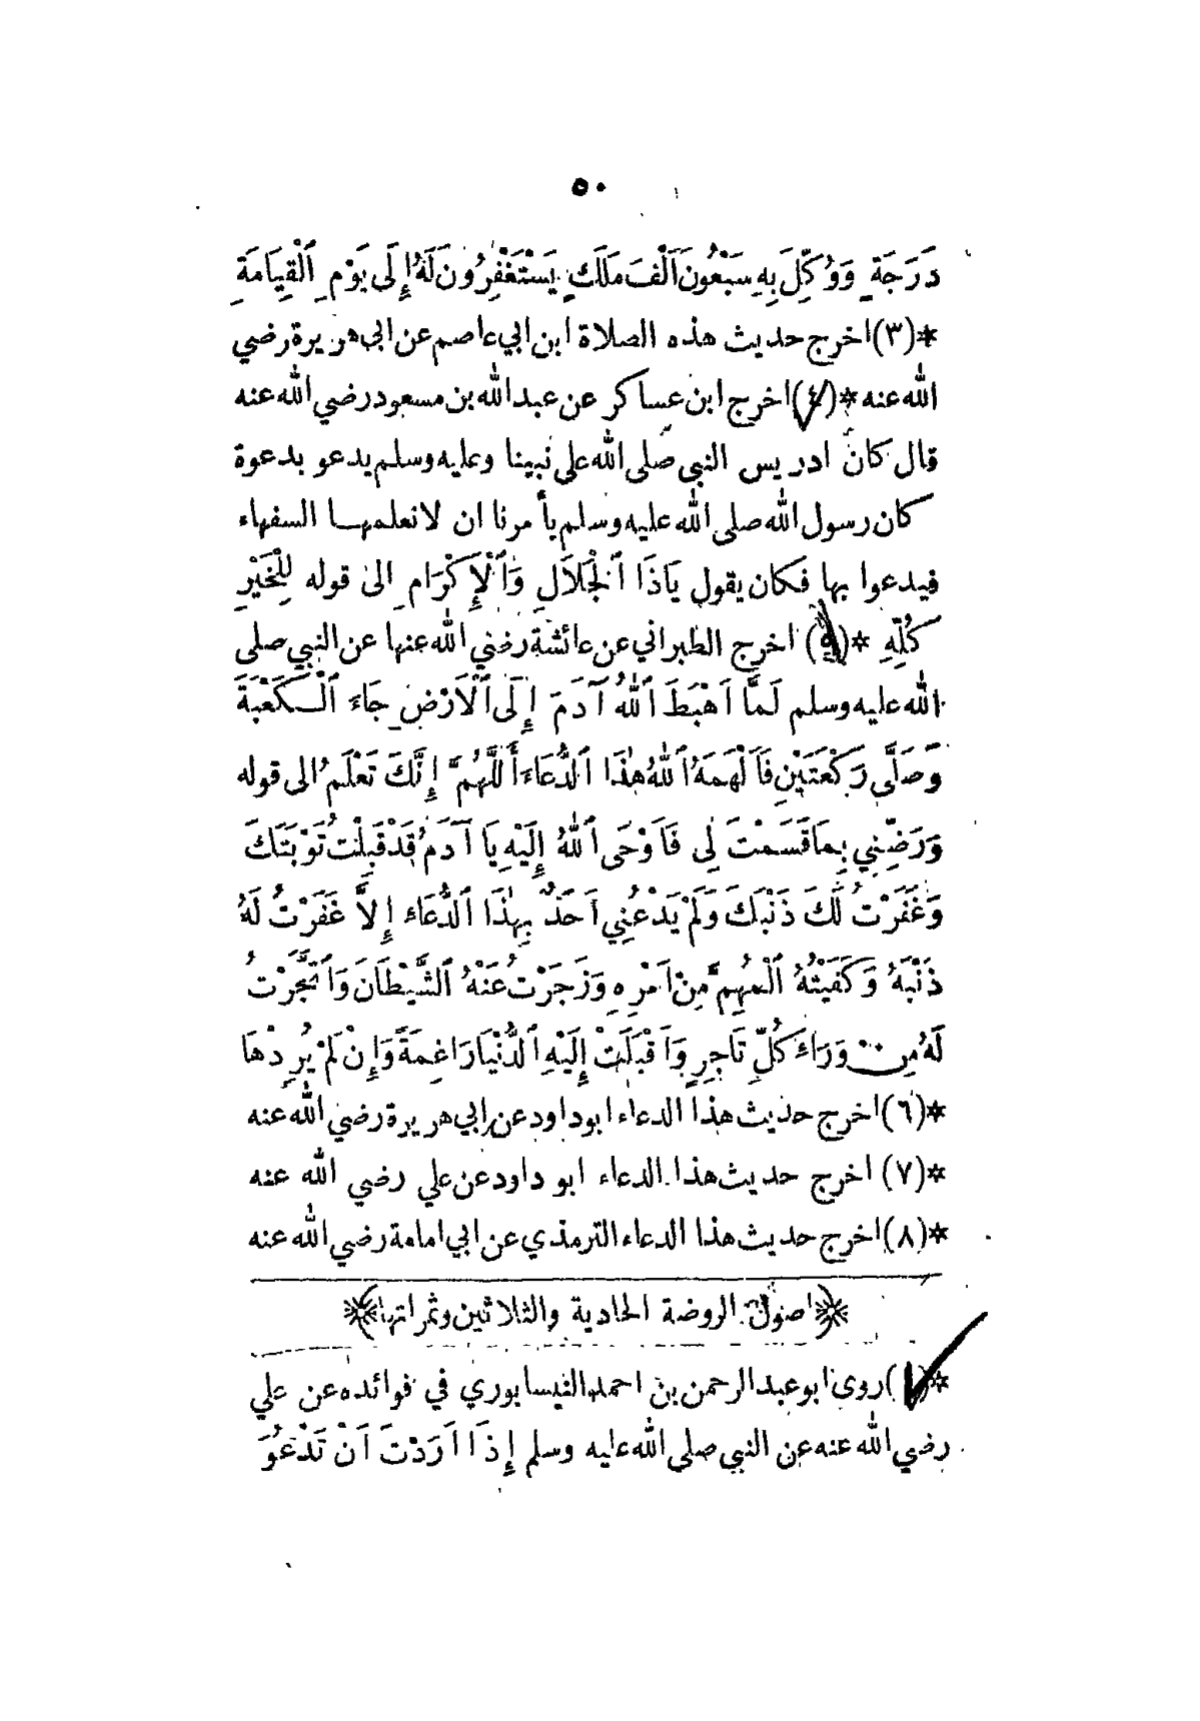 ٥٠
دَرَجَةٍ وَوُكِّلَ بِهِ سَبْعُونَ اَلْفَ مَلَكٍ يَسْتَغْفِرُونَ لَهُ إِلَى يَوْمِ ٱلْقِيَامَةِ
*(٣) اخرج حديث هذه الصلاة ابن ابي عاصم عن ابي هريرة رضي
الله عنه *(٤) اخرج ابن عساكر عن عبد الله بن مسعود رضي الله عنه
قال كان ادريس النبي صلى الله على نبينا وعليه وسلم يدعو بدعوة
كان رسول الله صلى الله عليه وسلم يأمرنا ان لا نعلمها السفهاء
فيدعوا بها فكان يقول يَاذَا ٱلْجَلَالِ وَٱلْإِكْرَامِ الى قوله لِلْخَيْرِ
كُلِّهِ *(٥) اخرج الطبراني عن عائشة رضي الله عنها عن النبي صلى
الله عليه وسلم لَمَّا اَهْبَطَ ٱللهُ آدَمَ إِلَى ٱلْاَرْضِ جَاءَ ٱلْكَعْبَةَ
وَصَلَّى رَكْعَتَيْنِ فَاَلْهَمَهُ ٱللهُ هٰذَا ٱلدُّعَاءَ أَللَّهُمَّ إِنَّكَ تَعْلَمُ الى قوله
وَرَضِّنِي بِمَا قَسَمْتَ لِي فَاَوْحَى ٱللهُ إِلَيْهِ يَا آدَمُ قَدْ قَبِلْتُ تَوْبَتَكَ
وَغَفَرْتُ لَكَ ذَنْبَكَ وَلَمْ يَدْعُنِي اَحَدٌ بِهٰذَا ٱلدُّعَاءِ إِلاَّ غَفَرْتُ لَهُ
ذَنْبَهُ وَكَفَيْتُهُ ٱلْمُهِمَّ مِنْ اَمْرِهِ وَزَجَرْتُ عَنْهُ ٱلشَّيْطَانَ وَٱتَّجَرْتُ
لَهُ مِنْ وَرَاءِ كُلِّ تَاجِرٍ وَاَقْبَلَتْ إِلَيْهِ ٱلدُّنْيَا رَاغِمَةً وَإِنْ لَمْ يُرِدْهَا
*(٦) اخرج حديث هذا الدعاء ابو داود عن ابي هريرة رضي الله عنه
*(٧) اخرج حديث هذا الدعاء ابو داود عن علي رضي الله عنه
*(٨) اخرج حديث هذا الدعاء الترمذي عن ابي امامة رضي الله عنه
﴿اصول الروضة الحادية والثلاثين وثمراتها﴾
*(١) روى ابو عبد الرحمن بن احمد النيسابوري في فوائده عن علي
رضي الله عنه عن النبي صلى الله عليه وسلم إِذَا اَرَدْتَ اَنْ تَدْعُوَ